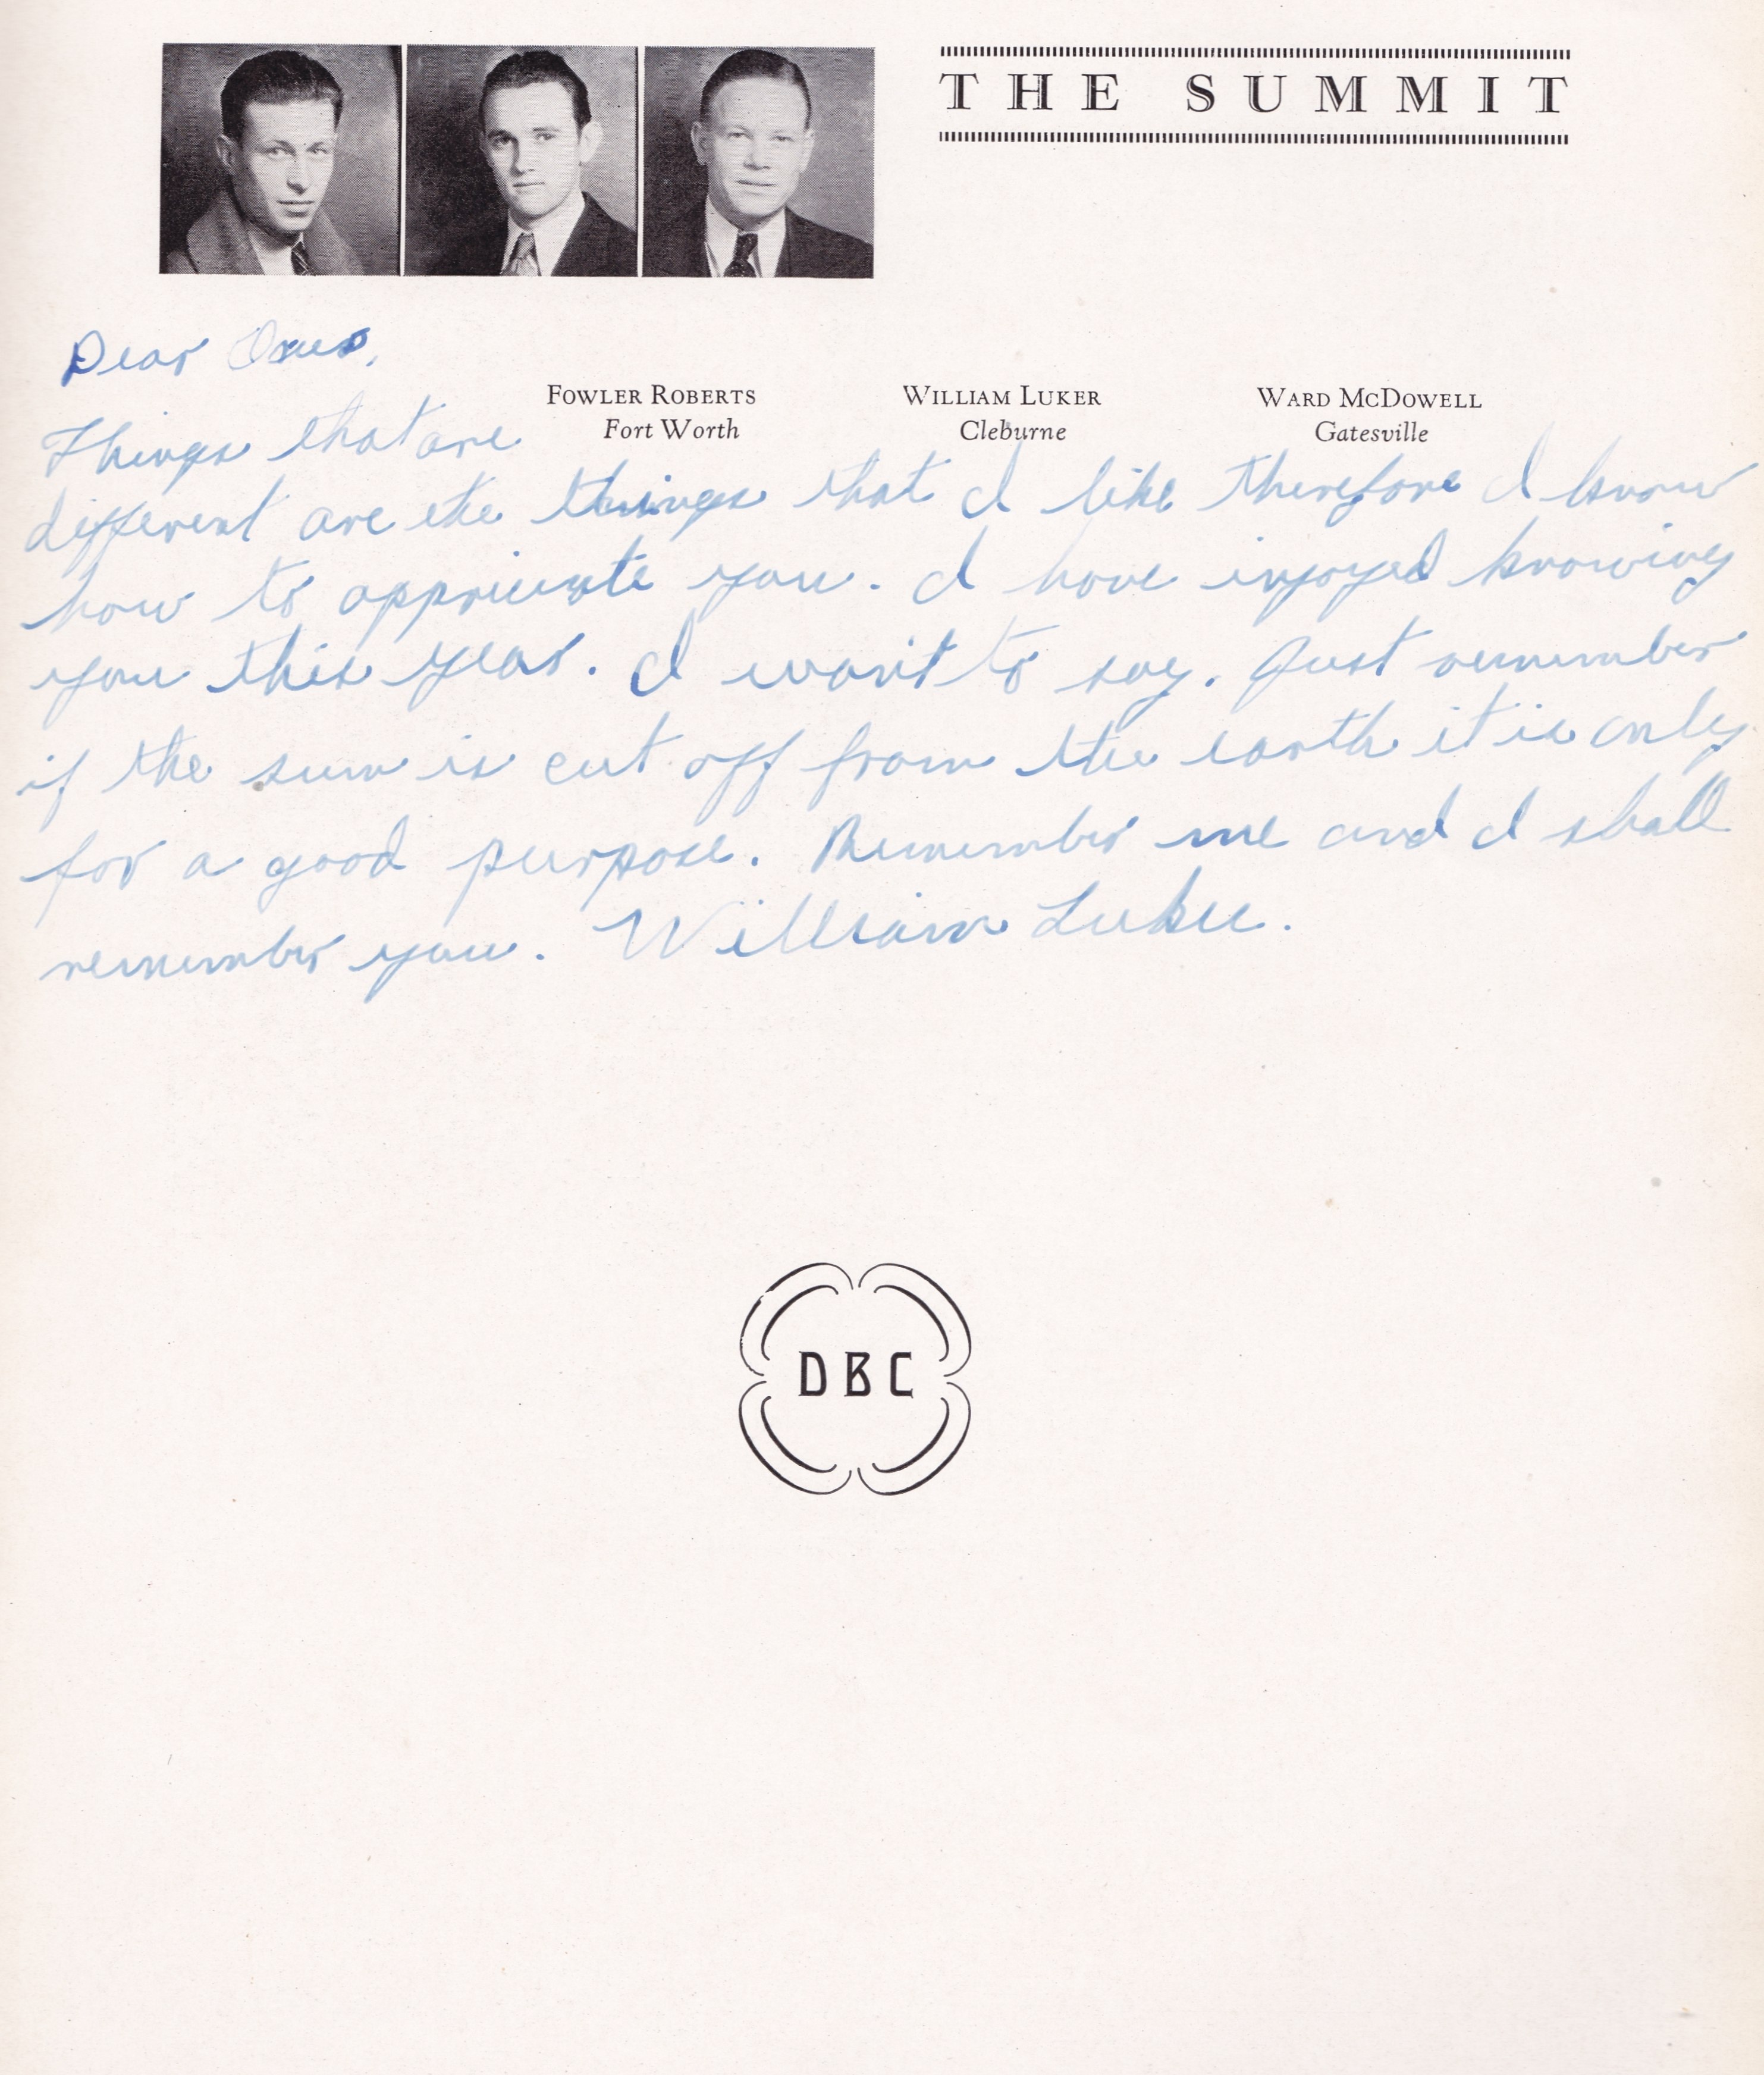 THE SUMMIT
Dear
FOWLER ROBERTS
Fort Worth
WILLIAM LUKER
Cleburne
WARD MCDOWELL
Gatesville
Things that are
different are the things that I like therefore I know
how to appriciate you. I have injoyed knowing
you this year. I want to say. Just remember
if the sun is cut off from the earth it is only
for a good purpose. Remember me and I shall
remember you. William Luker.
DBC